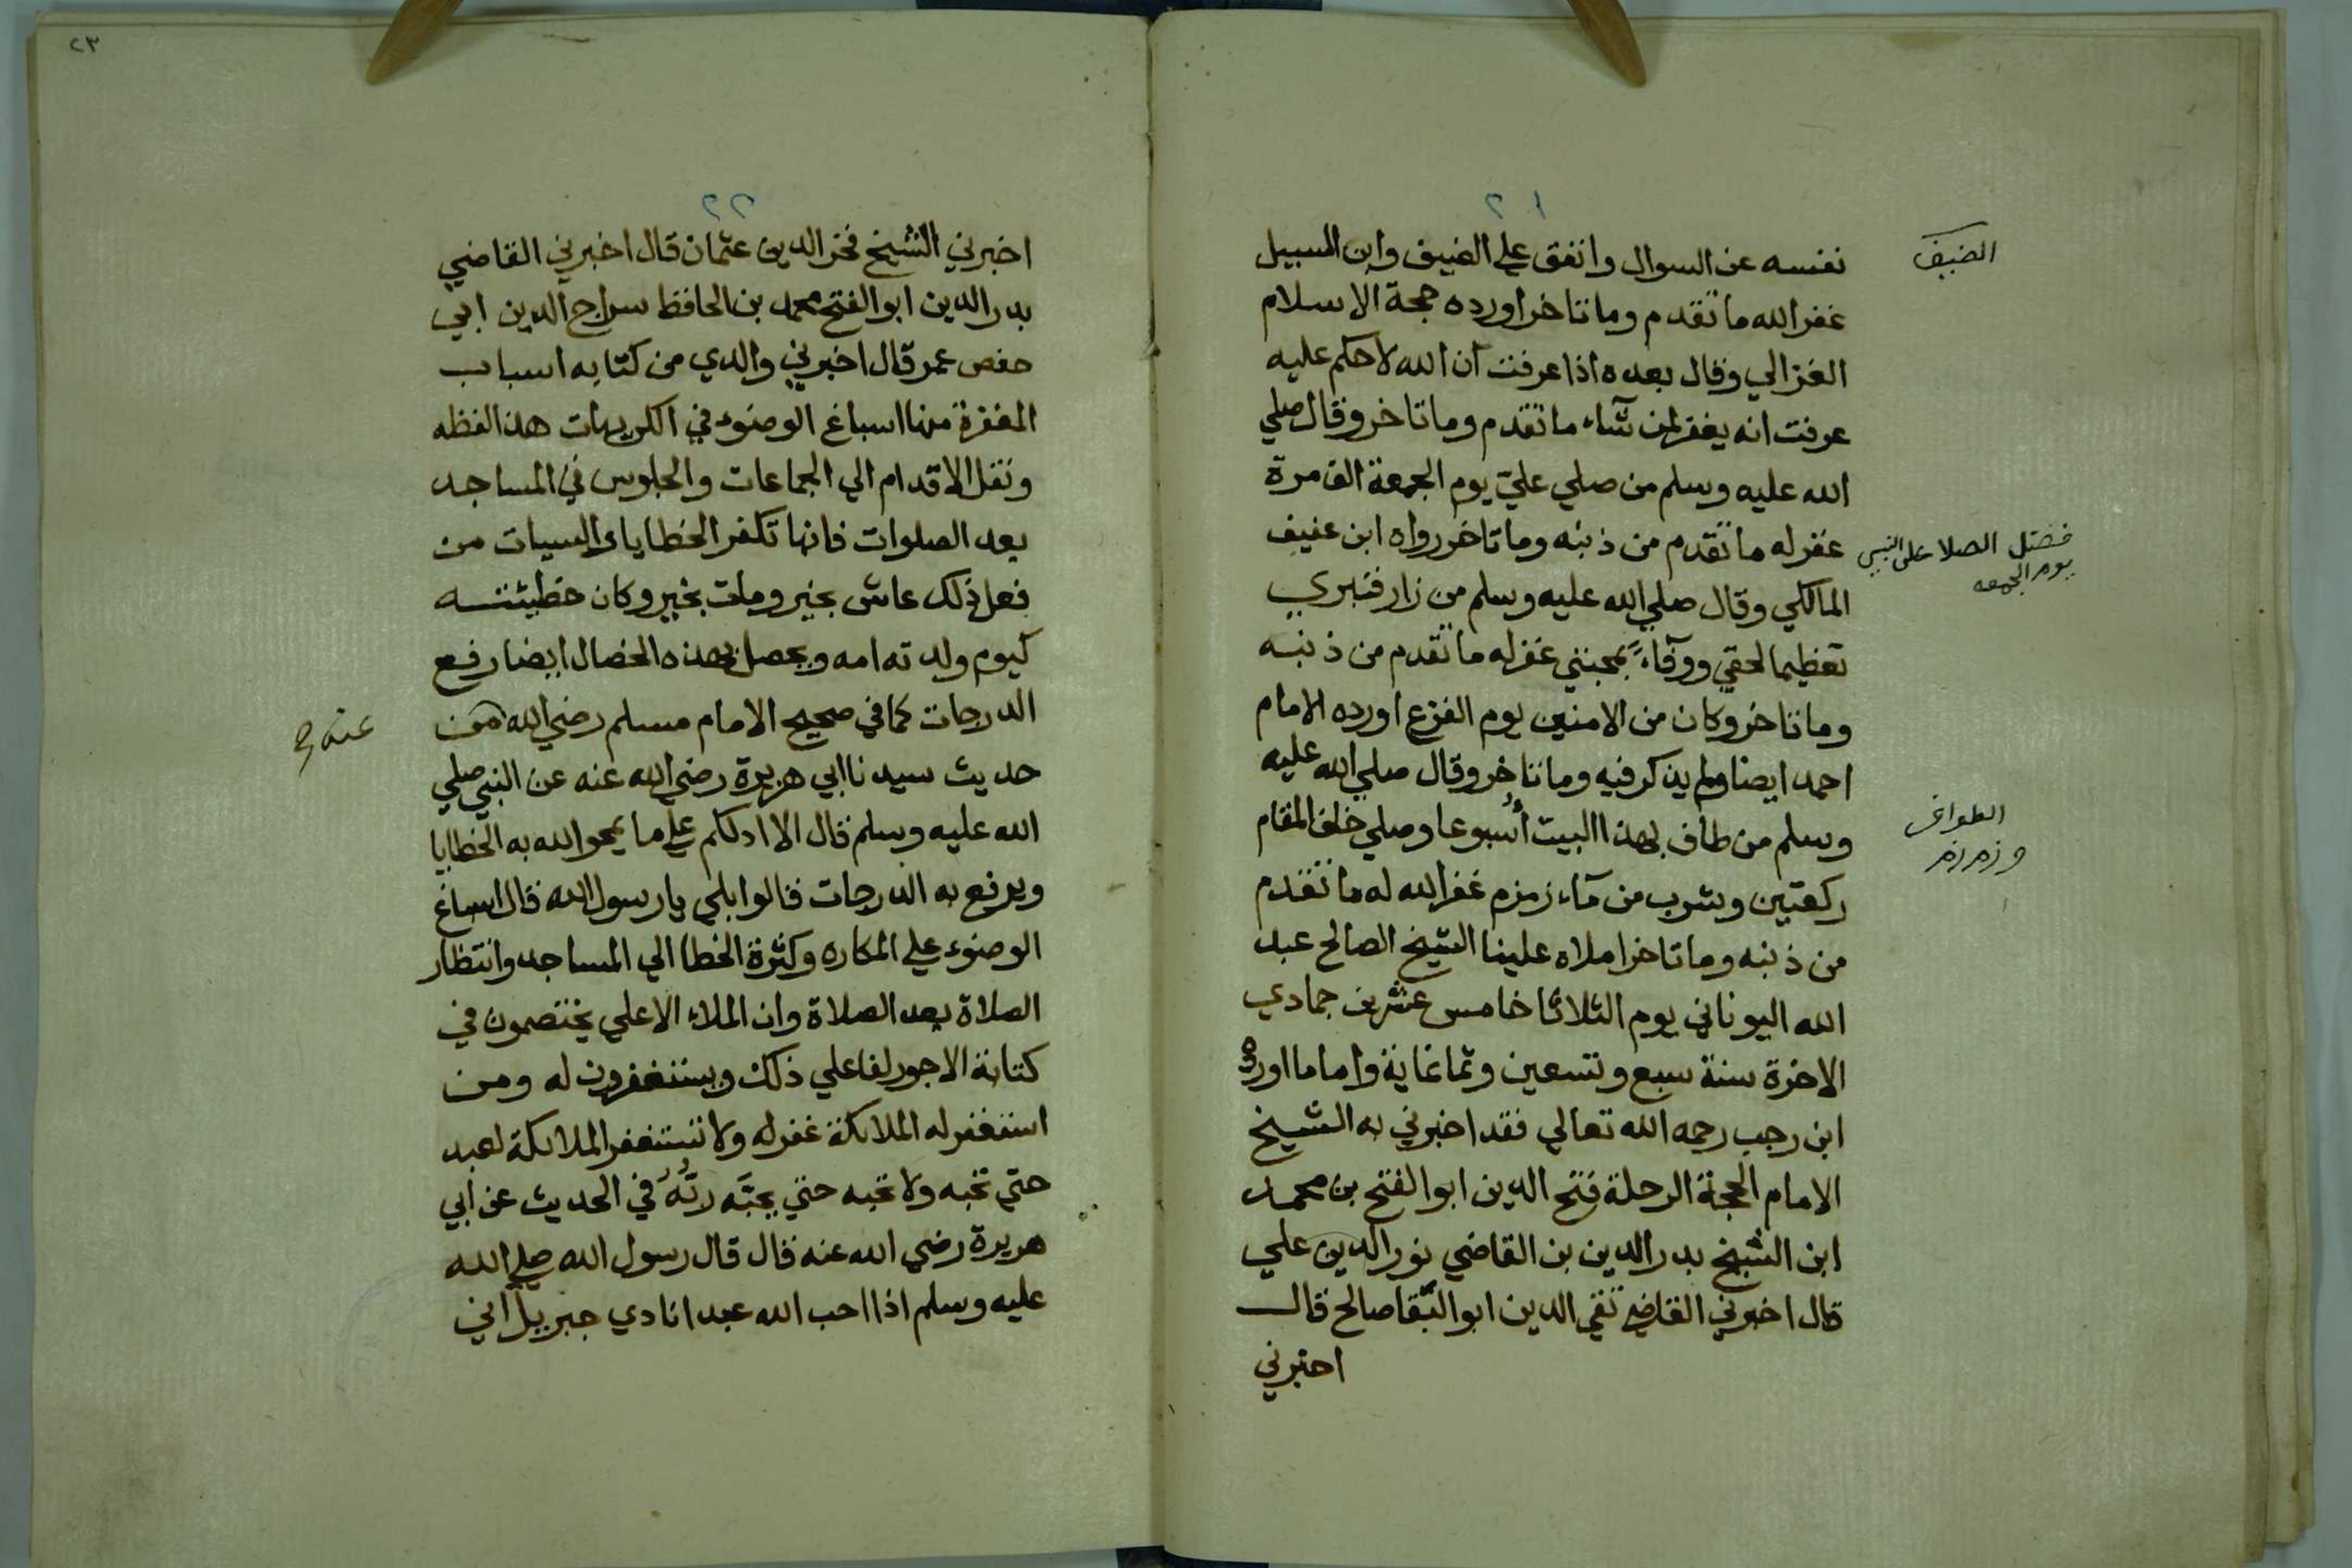 ٢١
نفسه عن السوال وانفق علي الضيف وابن السبيل
الضيف
غفر الله ما تقدم وما تاخر اورده حجة الاسلام
الغزالي وقال بعده اذا عرفت ان الله لاحكم عليه
عرفت انه يغفر لمن شاء ما تقدم وما تاخر وقال صلي
الله عليه وسلم من صلي عليّ يوم الجمعة الف مرة
غفر له ما تقدم من ذنبه وما تاخر رواه ابن عفيف
فضل الصلا على النبي
يوم الجمعه
المالكي وقال صلي الله عليه وسلم من زار قبري
تعظيما لحقي ووفآءً بمحبتي غفر له ما تقدم من ذنبه
وما تاخر وكان من الامنين يوم الفزع اورده الامام
احمد ايضا ولم يذكر فيه وما تاخر وقال صلي الله عليه
وسلم من طاف بهذا البيت أُسبوعا وصلي خلف المقام
الطواف
و زمزم
ركعتين وشرب من مآء زمزم غفر الله له ما تقدم
من ذنبه وما تاخر املاه علينا الشيخ الصالح عبد
الله اليوناني يوم الثلاثا خامس عشرين جمادي
الاخرة سنة سبع وتسعين وثمانماية واما ما اورده
ابن رجب رحمه الله تعالي فقد اخبرني به الشيخ
الامام الحجة الرحلة فتح الدين ابو الفتح بن محمد
ابن الشيخ بدر الدين بن القاضي نور الدين علي
قال اخبرني القاضي تقي الدين ابو البقا صالح قال
اخبرني
٢٣
٢٢
اخبرني الشيخ فخر الدين عثمان قال اخبرني القاضي
بدر الدين ابو الفتح محمد بن الحافظ سراج الدين ابي
حفص عمر قال اخبرني والدي من كتابه اسباب
المغفرة منها اسباغ الوضوء في الكريهات هذا لفظه
ونقل الاقدام الي الجماعات والجلوس في المساجد
بعد الصلوات فانها تكفر الخطايا والسيات من
فعل ذلك عاش بخير ومات بخير وكان خطيئته
كيوم ولد ته امه ويحصل بهذه الخصال ايضا رفع
الدرجات كما في صحيح الامام مسلم رضي الله من
عنه
حديث سيدنا ابي هريرة رضي الله عنه عن النبي صلي
الله عليه وسلم قال الا ادلكم علي ما يمحو الله به الخطايا
ويرفع به الدرجات قالوا بلي يا رسول الله قال اسباغ
الوضوء علي المكاره وكثرة الخطا الي المساجد وانتظار
الصلاة بعد الصلاة وان الملاء الاعلي يختصمون في
كتابة الاجور لفاعلي ذلك ويستغفرون له ومن
استغفر له الملائكة غفر له ولا تستغفر الملائكة لعبد
حتي تحبه ولا تحبه حتي يحبَّه ربُّهُ في الحديث عن ابي
هريرة رضي الله عنه قال قال رسول الله صلي الله
عليه وسلم اذا احب الله عبدا نادي جبريل اني